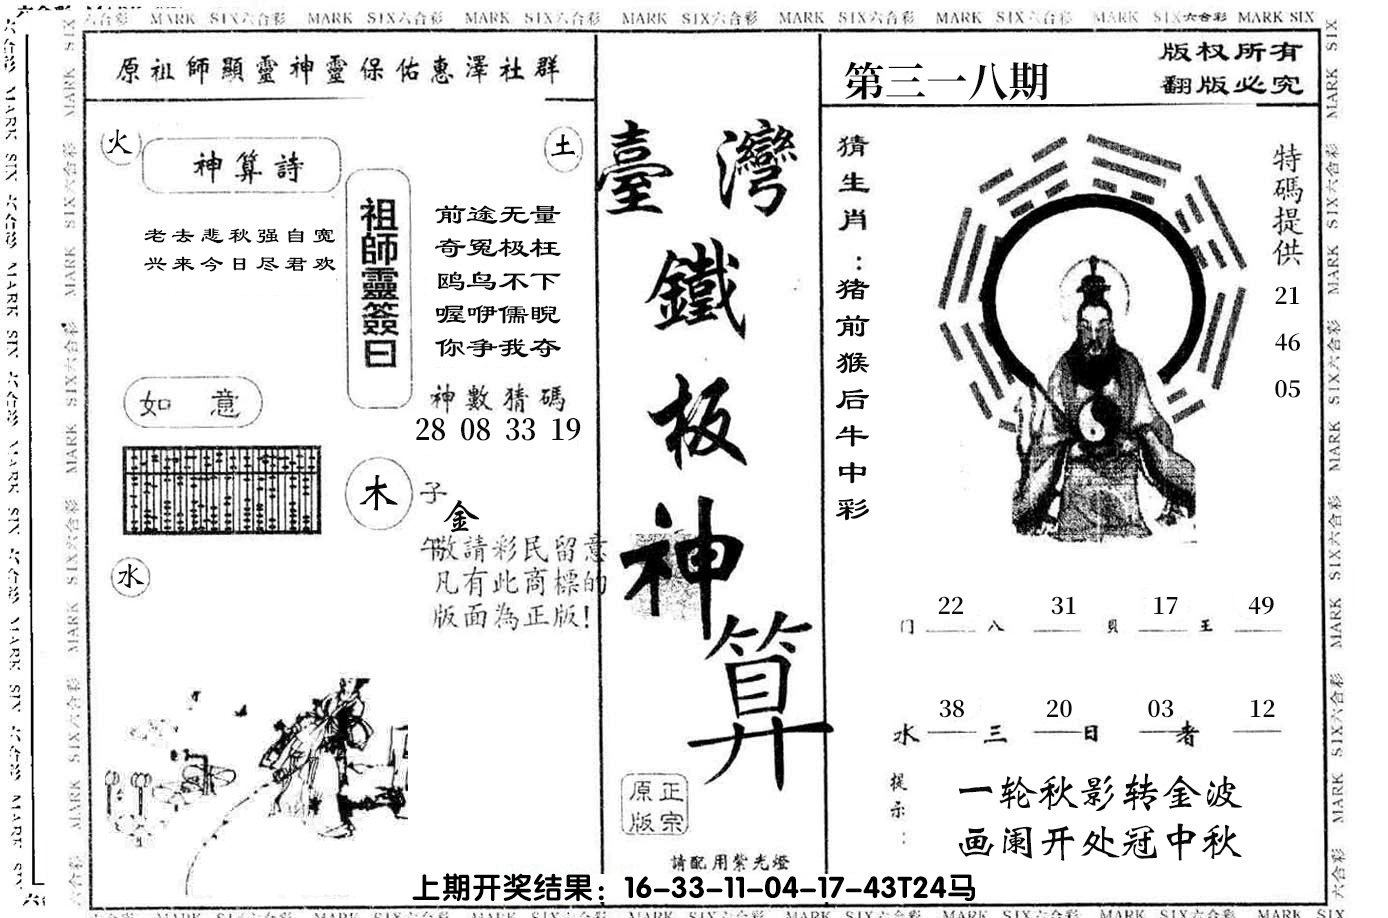 六合彩 MARK SIX六合彩 MARK SIX六合彩 MARK SIX六合彩 MARK SIX六合彩 MARK SIX六合彩 MARK SIX六合彩 MARK SIX六合彩 MARK SIX
原祖師顯靈神靈保佑惠澤社群
火
土
神算詩
老去悲秋强自宽
兴来今日尽君欢
祖師靈簽曰
前途无量
奇冤极枉
鸥鸟不下
喔咿儒睨
你争我夺
神數猜碼
28 08 33 19
如意
木
子
金
午
水
敬請彩民留意
凡有此商標的
版面為正版!
臺灣
鐵
板
神
算
正宗
原版
請配用紫光燈
第三一八期
版权所有
翻版必究
猜生肖:猪前猴后牛中彩
特碼提供
21
46
05
22 31 17 49
门 八 貝 王
38 20 03 12
水 三 日 者
提示:
一轮秋影转金波
画阑开处冠中秋
上期开奖结果：16-33-11-04-17-43T24马